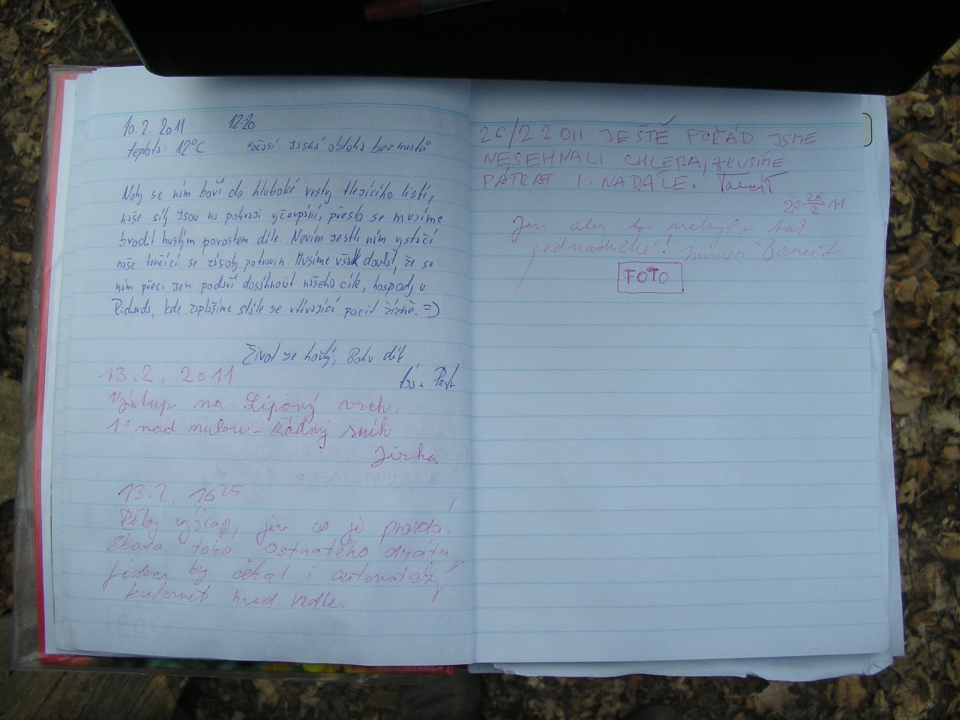 10.2. 2011 1220
teplota: 12°C Počasí: Jasná obloha bez mraků
Nohy se nám boří do hluboké vrsty tlejícího listí,
naše síly jsou na pokraji vyčerpání, přesto se musíme
brodit hustým porostem dále. Nevím jestli nám vystačí
naše tenčící se zásoby potravin. Musíme však doufat, že se
nám přeci jen podaří dosáhnout našeho cíle, hospody u
Richarda, kde zaplašíme stále se vtírající pocit žízně. =)
Život je hořký, Bohu dík
13.2. 2011
Výstup na Lipový vrch.
1° nad nulou - žádný sníh
Jirka
13.2. 1625
Pěkný výšlap, jen co je pravda!
Škoda toho ostnatého drátu,
jeden by čekal i automatický
kulomet hned vedle.
26/2 2011 JEŠTĚ POŘÁD JSME
NESEHNALI CHLEBA, ZKUSÍME
PÁTRAT I NADÁLE.
20 26/2 11
Jen aby to nebylo tak
jednoduché!
FOTO